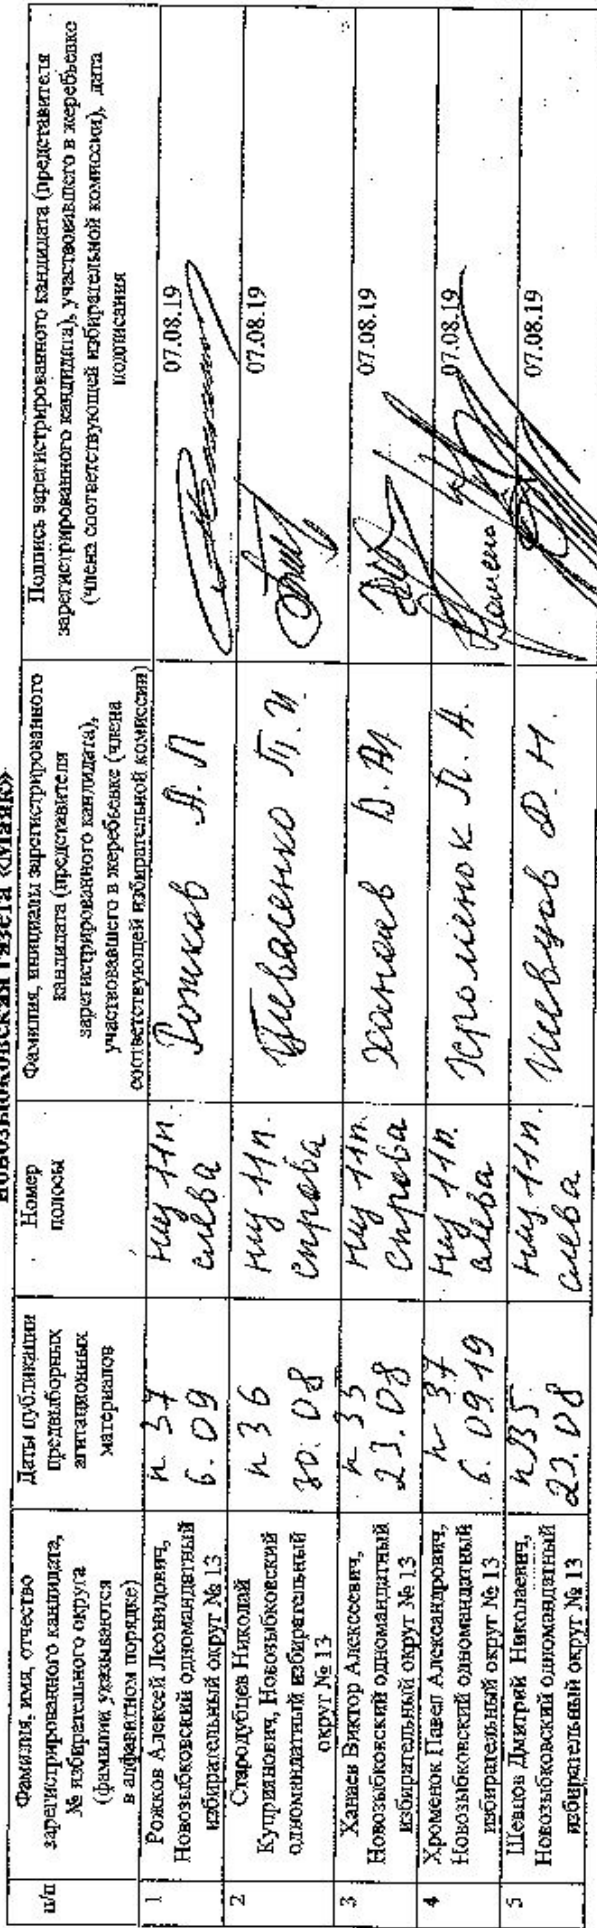 Новозыбковская газета «Маяк»
п/п
Фамилия, имя, отчество
зарегистрированного кандидата,
№ избирательного округа
(фамилии указываются
в алфавитном порядке)
Даты публикации
предвыборных
агитационных
материалов
Номер
полосы
Фамилия, инициалы зарегистрированного
кандидата (представителя
зарегистрированного кандидата),
участвовавшего в жеребьевке (члена
соответствующей избирательной комиссии)
Подпись зарегистрированного кандидата (представителя
зарегистрированного кандидата), участвовавшего в жеребьевке
(члена соответствующей избирательной комиссии), дата
подписания
1
Рожков Алексей Леонидович,
Новозыбковский одномандатный
избирательный округ № 13
н 37
6.09
низ 11п.
слева
Рожков А.Л
07.08.19
2
Стародубцев Николай
Куприянович, Новозыбковский
одномандатный избирательный
округ № 13
н 36
30.08
низ 11п.
справа
07.08.19
3
Ханаев Виктор Алексеевич,
Новозыбковский одномандатный
избирательный округ № 13
н 35
23.08
низ 11п.
справа
Ханаев В.А
07.08.19
4
Хроменок Павел Александрович,
Новозыбковский одномандатный
избирательный округ № 13
н 37
6.09.19
низ 11п.
слева
Хроменок П.А.
07.08.19
5
Шевцов Дмитрий Николаевич,
Новозыбковский одномандатный
избирательный округ № 13
н 35
23.08
низ 11п.
слева
Шевцов Д.Н.
07.08.19